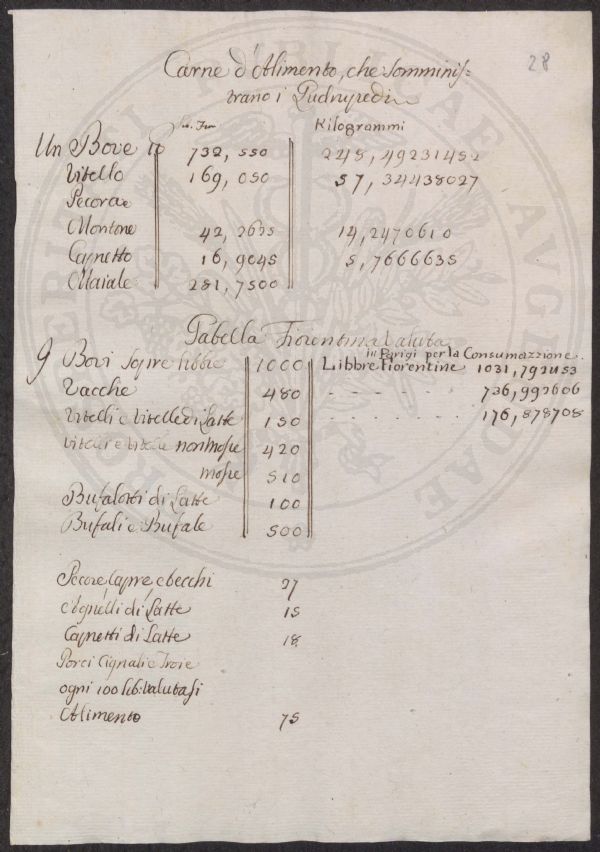 28
Carne d'Alimento, che somminis=
trano i Qudrupedi
Lib. Fior. Kilogrammi
Un Bove 732, 550 248, 49231452
Vitello 169, 050 57, 34438027
Pecora
Montone 42, 2635 14, 2470610
Capretto 16, 9045 5, 7666635
Maiale 281, 7500
Tabella Fiorentina Valuta
in Parigi per la Consumazzione.
9 Bovi sopre libbre 1000 Libbre Fiorentine 1031, 792453
Vacche 480 736, 992606
Vitelli e Vitelle di Latte 150 176, 878708
Vitelli e Vitelle non mose 420
mose 510
Bufalotti di Latte 100
Bufali e Bufale 500
Pecore, Capre, e becchi 27
Agnelli di Latte 15
Capretti di Latte 18
Porci Cignali e Troie
ogni 100 lib. Valutasi
Alimento 75